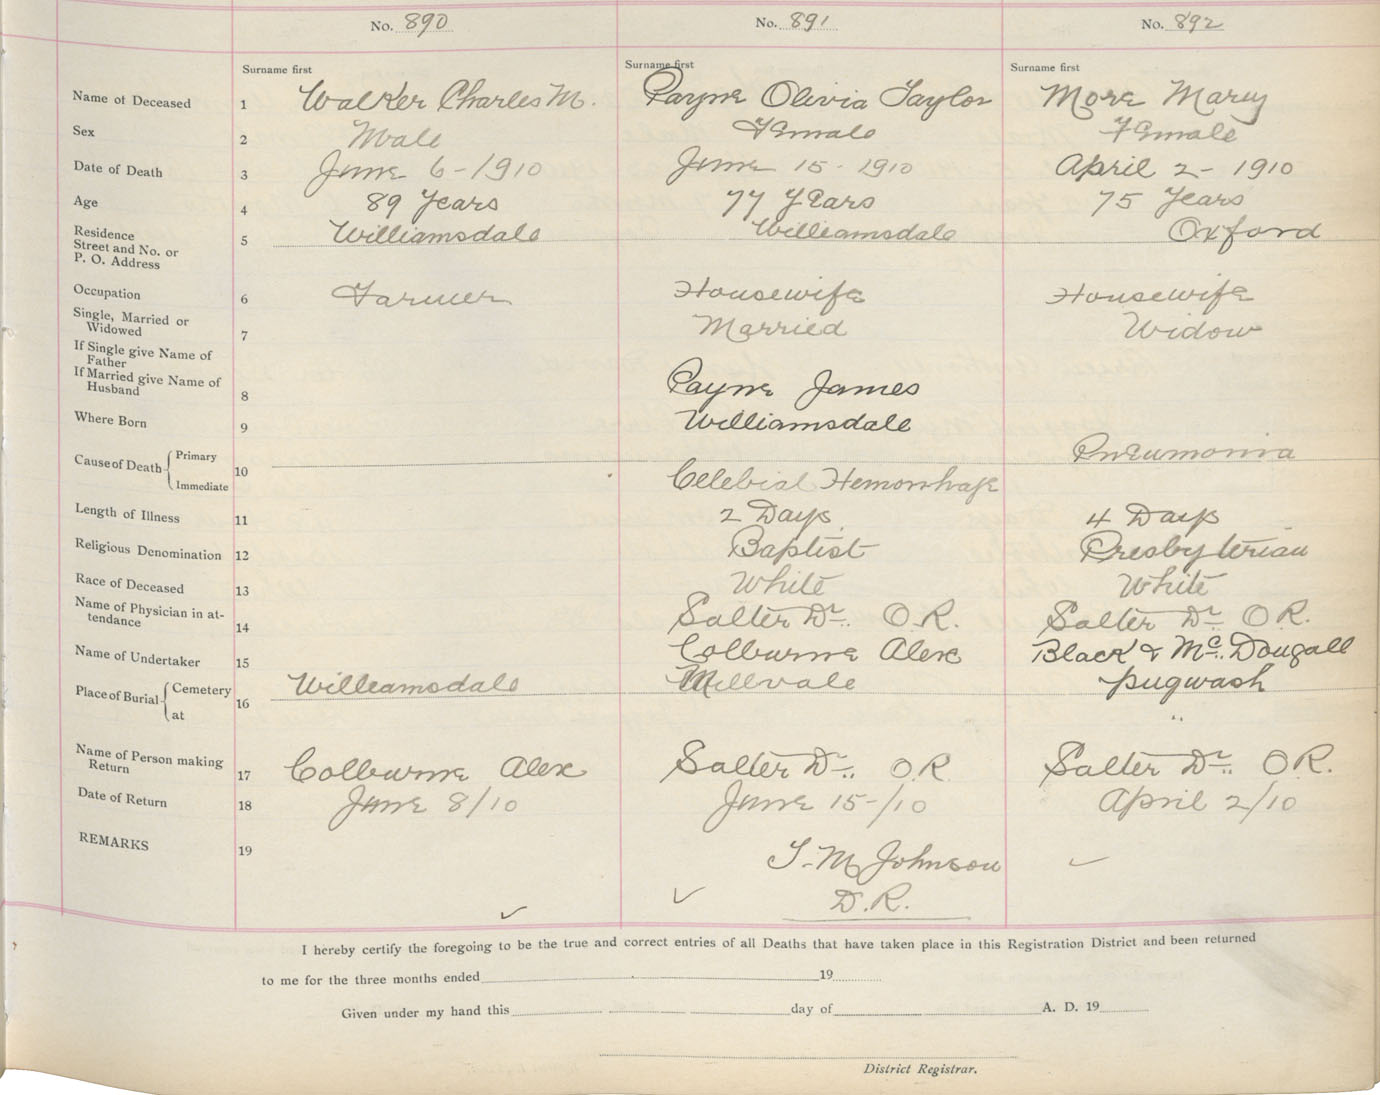 No. 890 No. 891 No. 892
Surname first Surname first Surname first
Name of Deceased 1 Walker Charles M. Payne Olivia Taylor More Mary
Sex 2 Male Female Female
Date of Death 3 June 6-1910 June 15-1910 April 2-1910
Age 4 89 Years 77 Years 75 Years
Residence
Street and No. or
P. O. Address 5 Williamsdale Williamsdale Oxford
Occupation 6 Farmer Housewife Housewife
Single, Married or
Widowed 7 Married Widow
If Single give Name of
Father
If Married give Name of
Husband 8 Payne James
Where Born 9 Williamsdale
Cause of Death Primary 10 Pneumonia
Immediate Celebial Hemorrhage
Length of Illness 11 2 Days 4 Days
Religious Denomination 12 Baptist Presbyterian
Race of Deceased 13 White White
Name of Physician in at-
tendance 14 Salter Dr. O.R. Salter Dr. O.R.
Name of Undertaker 15 Colburne Alex Black & Mc. Dougall
Place of Burial Cemetery 16 Williamsdale Millvale Pugwash
at "
Name of Person making
Return 17 Colburne Alex Salter Dr. O.R. Salter Dr. O.R.
Date of Return 18 June 8/10 June 15-/10 April 2/10
REMARKS 19 T. M Johnson
D.R.
I hereby certify the foregoing to be the true and correct entries of all Deaths that have taken place in this Registration District and been returned
to me for the three months ended 19
Given under my hand this day of A. D. 19
District Registrar.